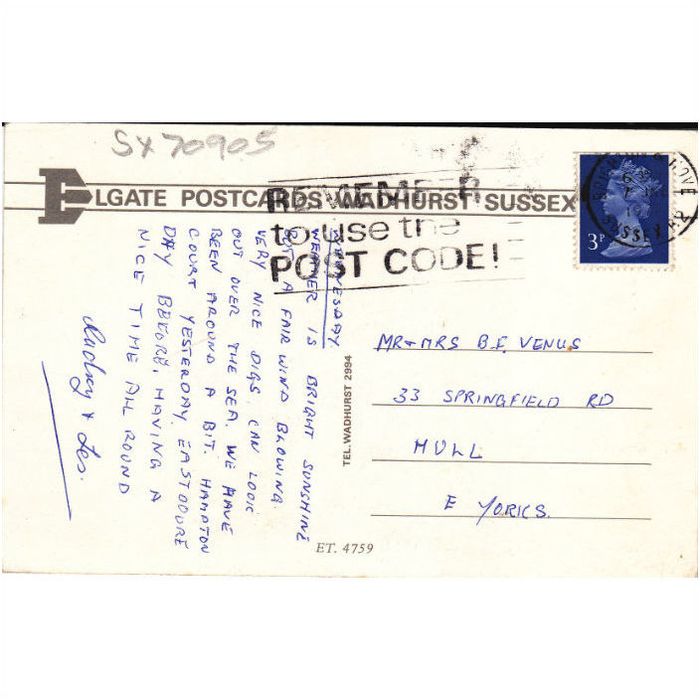 SX70905
ELGATE POSTCARDS WADHURST SUSSEX
REMEMBER
to use the
POST CODE!
3P
WEDNESDAY
WEATHER IS BRIGHT SUNSHINE
BUT A FAIR WIND BLOWING.
VERY NICE DIGS, CAN LOOK
OUT OVER THE SEA. WE HAVE
BEEN AROUND A BIT. HAMPTON
COURT YESTERDAY. EASTOURE
DAY BEFORE. HAVING A
NICE TIME ALL ROUND
Audrey + Les.
TEL. WADHURST 2994
MR & MRS B.F. VENUS
33 SPRINGFIELD RD
HULL
E YORKS.
ET. 4759